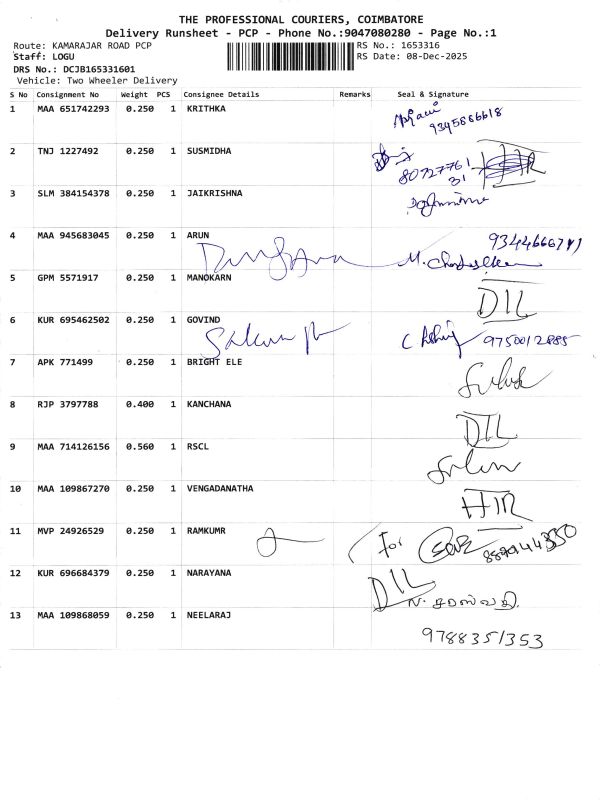 THE PROFESSIONAL COURIERS, COIMBATORE
Delivery Runsheet - PCP - Phone No.:9047080280 - Page No.:1
Route: KAMARAJAR ROAD PCP RS No.: 1653316
Staff: LOGU RS Date: 08-Dec-2025
DRS No.: DCJB165331601
Vehicle: Two Wheeler Delivery
S No Consignment No Weight PCS Consignee Details Remarks Seal & Signature
1 MAA 651742293 0.250 1 KRITHKA
9345866618
2 TNJ 1227492 0.250 1 SUSMIDHA
80727761
31
3 SLM 384154378 0.250 1 JAIKRISHNA
4 MAA 945683045 0.250 1 ARUN
5 GPM 5571917 0.250 1 MANOKARN
DIL
6 KUR 695462502 0.250 1 GOVIND
9750012885
7 APK 771499 0.250 1 BRIGHT ELE
8 RJP 3797788 0.400 1 KANCHANA
DIL
9 MAA 714126156 0.560 1 RSCL
10 MAA 109867270 0.250 1 VENGADANATHA
H/R
11 MVP 24926529 0.250 1 RAMKUMR
For
12 KUR 696684379 0.250 1 NARAYANA
DIL
ந. சரஸ்வதி.
13 MAA 109868059 0.250 1 NEELARAJ
9788351353